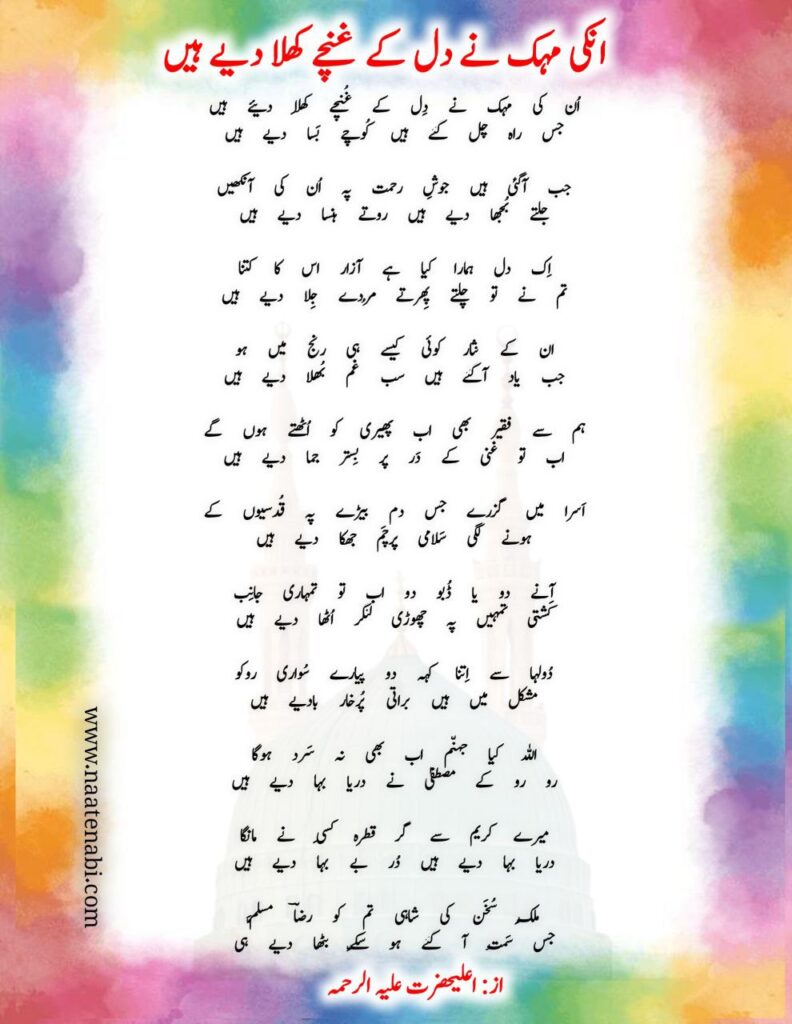 انکی مہک نے دل کے غنچے کھلا دیے ہیں
اُن کی مہک نے دِل کے غُنچے کھلا دیئے ہیں
جس راہ چل گئے ہیں کُوچے بَسا دیے ہیں
جب آگئی ہیں جوشِ رحمت پہ اُن کی آنکھیں
جلتے بُجھا دیے ہیں روتے ہنسا دیے ہیں
اِک دل ہمارا کیا ہے آزار اس کا کتنا
تم نے تو چلتے پِھرتے مردے جِلا دیے ہیں
ان کے نثار کوئی کیسے ہی رنج میں ہو
جب یاد آگئے ہیں سب غم بُھلا دیے ہیں
ہم سے فقیر بھی اب پھیری کو اُٹھتے ہوں گے
اب تو غنی کے دَر پر بِستر جما دیے ہیں
اَسرا میں گزرے جس دم بیڑے پہ قُدسیوں کے
ہونے لگی سَلامی پرچَم جھکا دیے ہیں
آنے دو یا ڈُبو دو اب تو تمہاری جانِب
کَشتی تمہیں پہ چھوڑی لنگر اُٹھا دیے ہیں
دُولہا سے اِتنا کہہ دو پیارے سُواری روکو
مشکل میں ہیں براتی پُرخار بادیے ہیں
اللہ کیا جہنّم اب بھی نہ سَرد ہوگا
رو رو کے مصطفیٰ نے دریا بہا دیے ہیں
میرے کریم سے گر قطرہ کسی نے مانگا
دریا بہا دیے ہیں دُر بے بہا دیے ہیں
ملک سُخَن کی شاہی تم کو رضاؔ مسلم
جس سَمت آ گئے ہو سکے بٹھا دیے ہی
از: اعلیحضرت علیہ الرحمہ
www.naatenabi.com